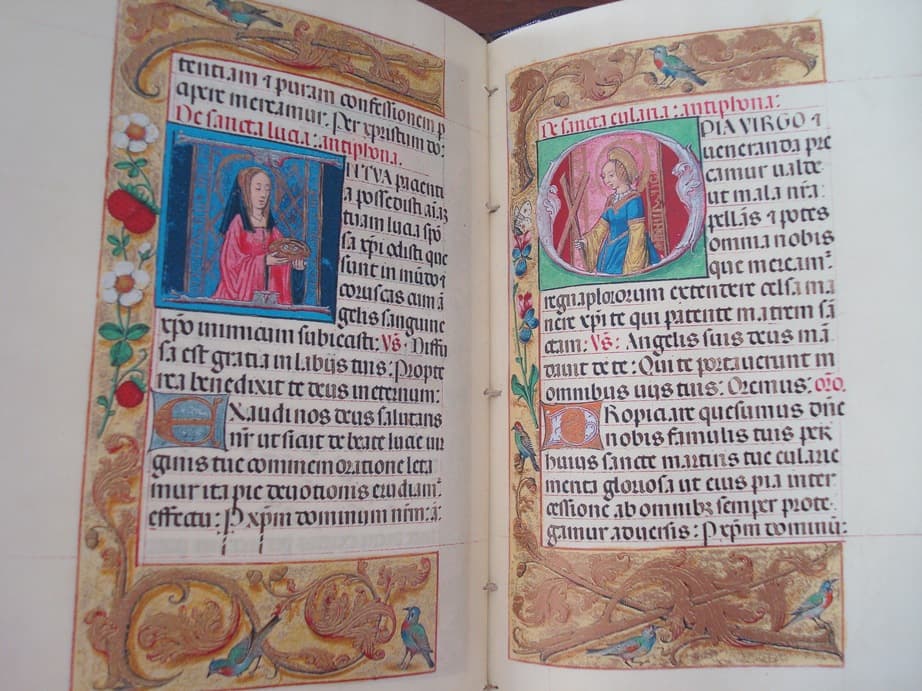 tentiam & puram confessionem p
apere mereamur: Per xpristum do:
De sancta lucia: antiphona.
I TVA pacienti
a possedisti aĩaz
tuam lucia spõ
sa xpi odisti que
sunt in mũdo &
coruscas cum ã
gelis sanguine
xpo inimicum subiecisti: Vs: Diffu
sa est gratia in labijs tuis: Propte
rea benedixit te deus in eternum:
Exaudi nos deus salutaris
nr ut sicut de beate lucie uir
ginis tue commemoratione leta
mur ita pie deuotionis erudiam²
effectu: P xpm dominum nrm: a:
De sancta eularia: antiphona:
O PIA VIRGO &
ueneranda pre
camur ualde
ut mala nra:
pellas & potes
omnia nobis
que meream²
regna polorum extendere celsa ma
nere xpi te qui patente matrem sã
ctam: Vs: Angelis suis deus mã
dauit de te: Qui te portauerunt in
omnibus uijs tuis: Oremus: oro.
Propiciare quesumus dñe
nobis famulis tuis per
huius sancte martiris tue eularie
merita gloriosa ut eius pia inter
cessione ab omnibz semper prote
gamur aduersis: P xpm dominũ: